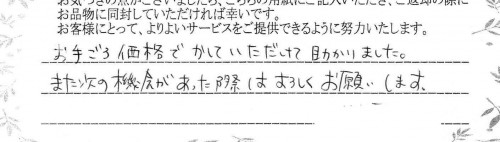 お気づきの点がございましたら、こちらの用紙にご記入いただき、ご返却の際に
お品物に同封していただければ幸いです。
お客様にとって、よりよいサービスをご提供できるように努力いたします。
お手ごろ価格でかしていただけて助かりました。
また次の機会があった際はよろしくお願いします。